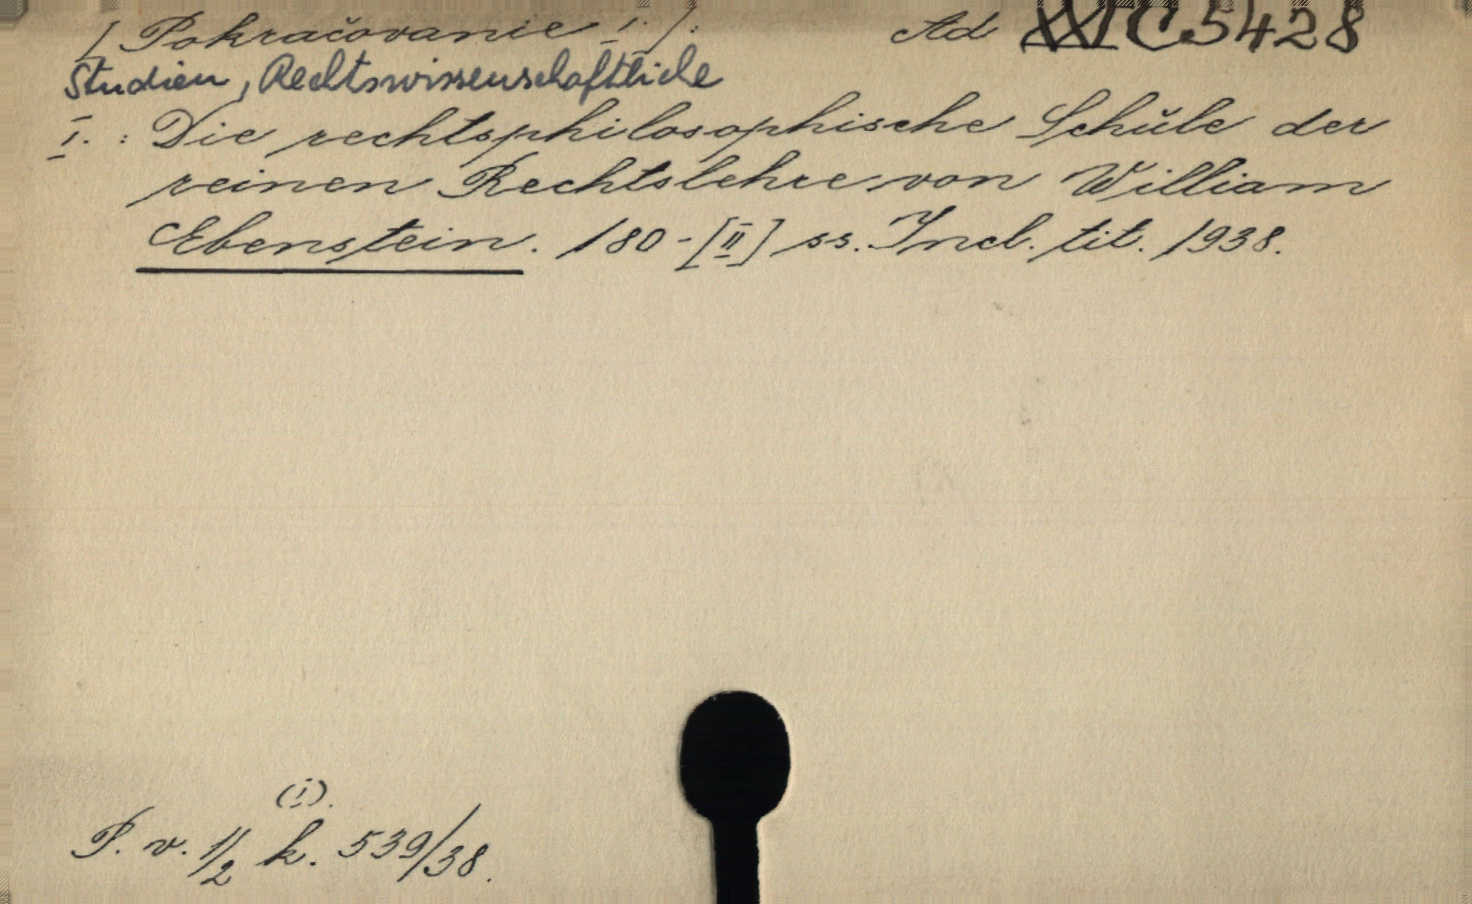 [Pokračovanie I.]: Ad C 5428
Studien, Rechtswissenschaftliche
I. : Die rechtsphilosophische Schŭle der
reinen Rechtslehre von William
Ebenstein. 180-[II] ss. Incl. tit. 1938.
(I).
P. v. 1/2 k. 539/38.